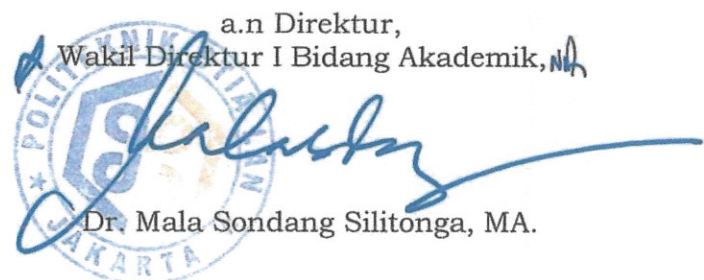 a.n Direktur,
Wakil Direktur I Bidang Akademik,
Dr. Mala Sondang Silitonga, MA.
JAKARTA